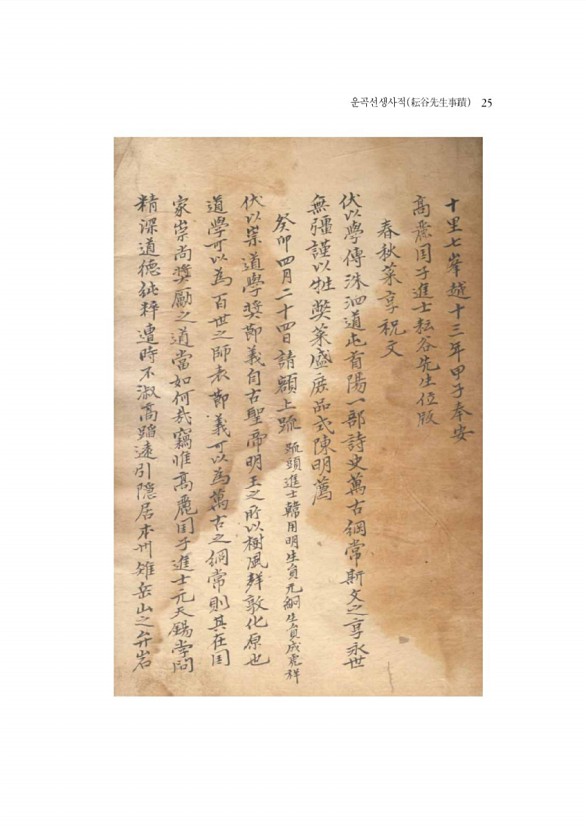 운곡선생사적(耘谷先生事蹟) 25
十里七峯越十三年甲子奉安
高麗囯子進士耘谷先生位版
春秋菜享祝文
伏以學傳洙泗道屯首陽一部詩史萬古綱常斯文之享永世
無疆謹以牲弊粢盛庶品式陳明薦
癸卯四月二十四日請額上疏 疏頭進士韓用明生員元嗣生員成虎祥
伏以崇道學奬節義自古聖帝明王之所以樹風聲敦化原也
道學可以為百世之師表節義可以為萬古之綱常則其在囯
家崇尚奬勵之道當如何哉竊惟高麗囯子進士元天錫學問
精深道德純粹遭時不淑高蹈遠引隱居本州雉岳山之弁岩